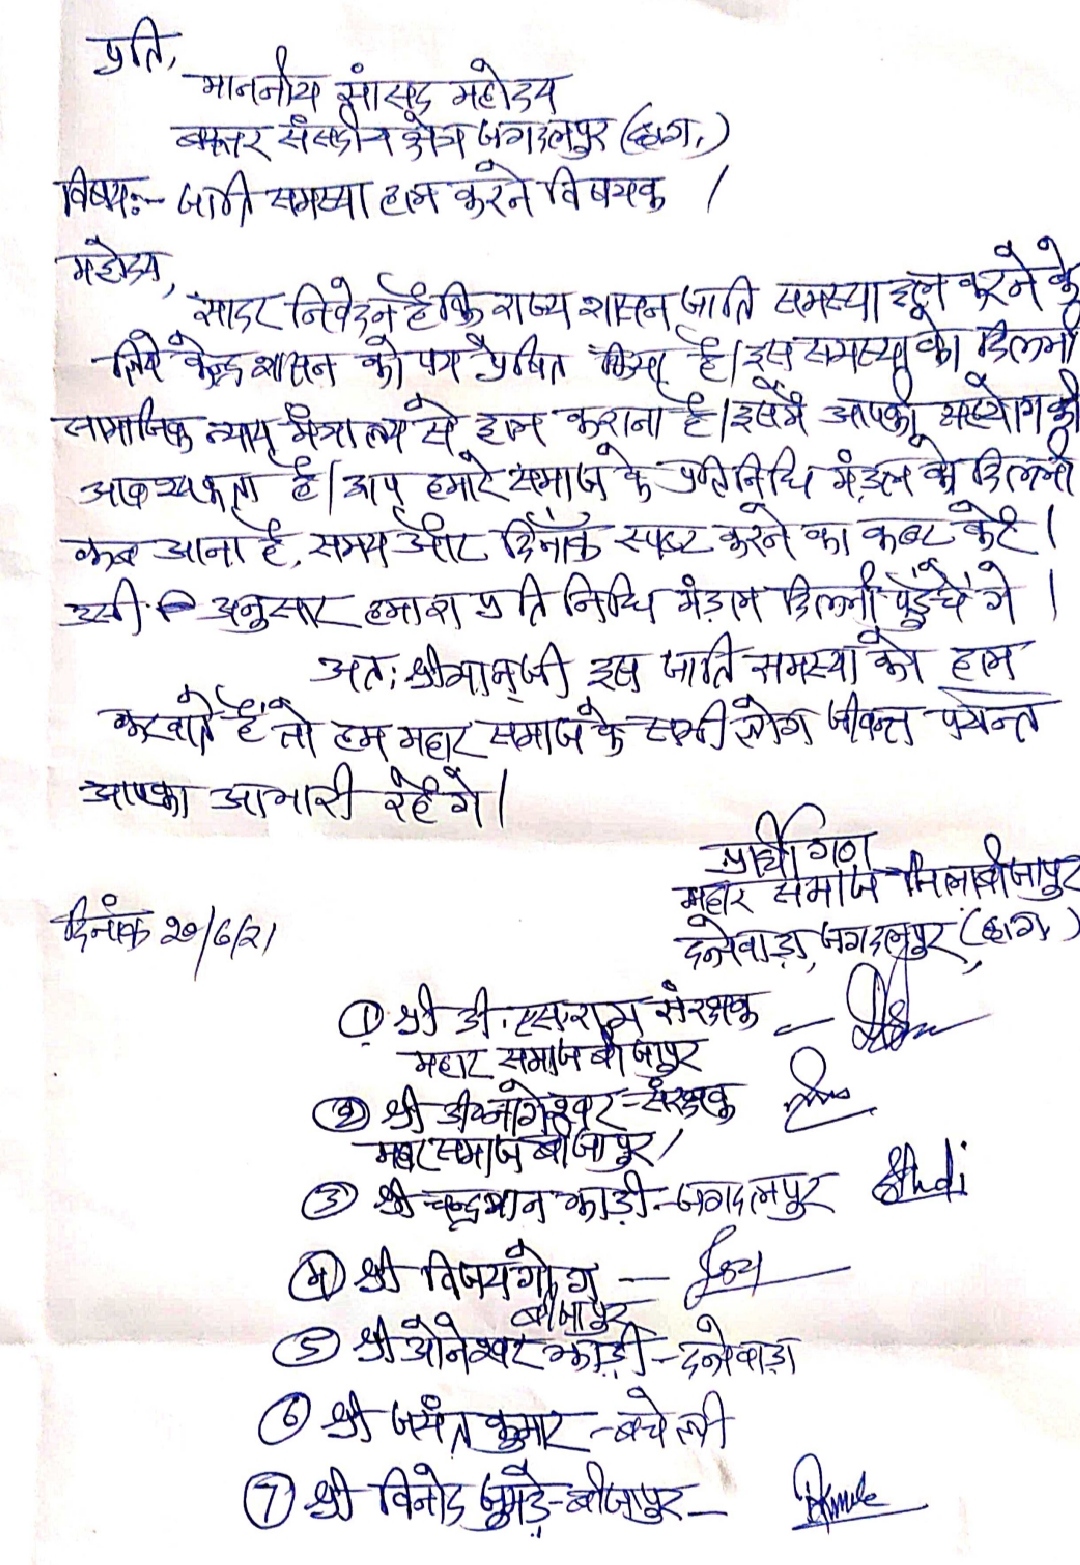 प्रति,
माननीय सांसद महोदय
बस्तर संसदीय क्षेत्र जगदलपुर (छ.ग.)
विषय:- जाति समस्या हल करने विषयक /
महोदय,
सादर निवेदन है कि राज्य शासन जाति समस्या हल करने के
लिये केन्द्र शासन को पत्र प्रेषित किया है। इस समस्या को दिल्ली
सामाजिक न्याय मंत्रालय से हल कराना है। इसमें आपकी सहयोग की
आवश्यकता है। आप हमारे समाज के प्रतिनिधि मंडल को दिल्ली
कब आना है, समय और दिनाँक स्पष्ट करने का कष्ट करें।
उसी अनुसार हमारा प्रतिनिधि मंडल दिल्ली पहुँचेंगे।
अतः श्रीमान् जी इस जाति समस्या को हल
करवाते हैं तो हम महार समाज के सभी लोग जीवन पर्यन्त
आपका आभारी रहेंगे।
प्रार्थी गण
महार समाज जिला बीजापुर
दिनांक 20/6/21
दन्तेवाड़ा, जगदलपुर (छ.ग.)
① श्री डी. एस. राम संरक्षक
महार समाज बीजापुर
② श्री नागेश्वर - संरक्षक
महार समाज बीजापुर /
③ श्री चन्द्रभान झाड़ी - जगदलपुर
④ श्री विजय —
बीजापुर
⑤ श्री झाड़ी - दन्तेवाड़ा
⑥ श्री जयंत कुमार - बचेली
⑦ श्री विनोद जुमड़े - बीजापुर -